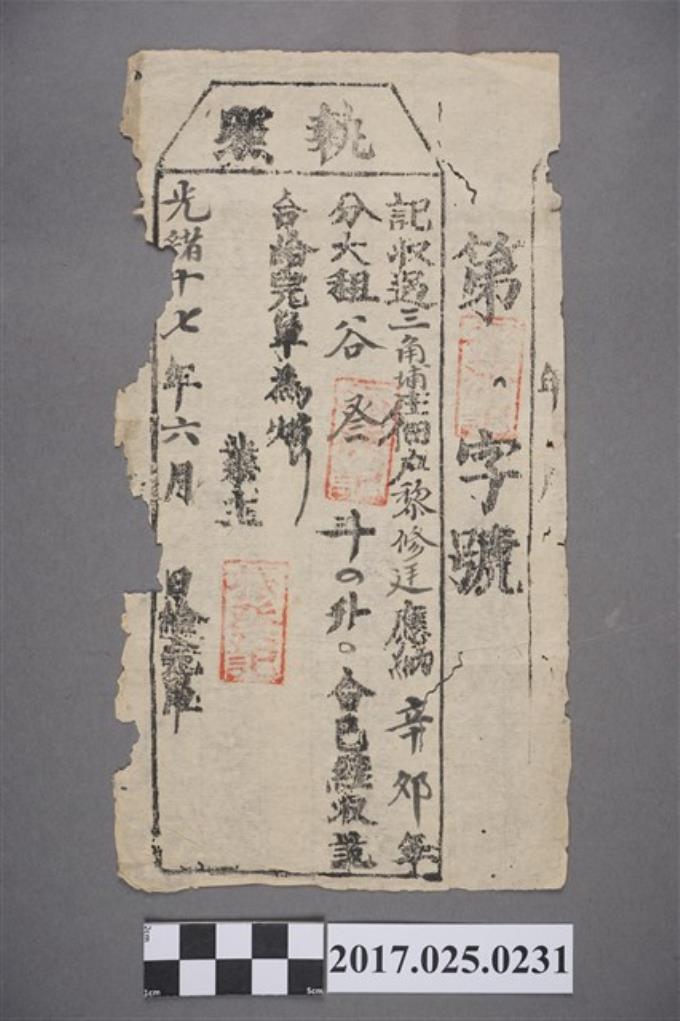 第 字號
執照
記收過三角埔庄佃戶黎修廷應納辛卯年
分大租谷 叁斗0升0合已經收訖
合給完單為炤
業主
光緒十七年六月 日給完單
2017.025.0231